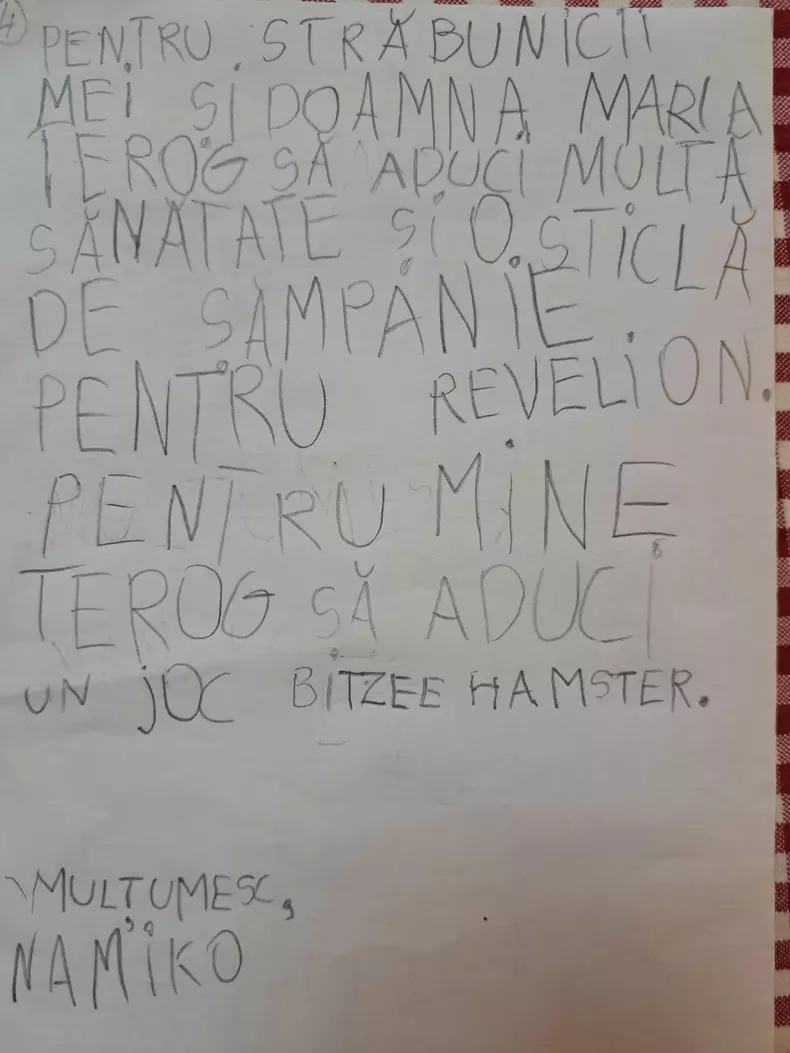 4
PENTRU STRĂBUNICII
MEI ȘI DOAMNA MARIA
TEROG SĂ ADUCI MULTĂ
SĂNĂTATE ȘI O STICLĂ
DE ȘAMPANIE
PENTRU REVELION.
PENTRU MINE
TEROG SĂ ADUCI
UN JOC BITZEE HAMSTER.
MULȚUMESC,
NAMIKO